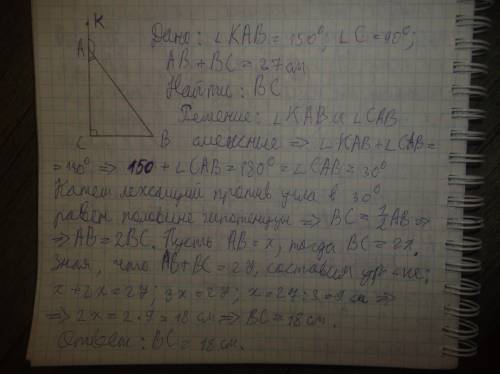 K
A
C
B
Дано: ∠KAB = 150°; ∠C = 90°;
AB + BC = 27 см
Найти: BC
Решение: ∠KAB и ∠CAB
смежные => ∠KAB + ∠CAB =
= 180° => 150 + ∠CAB = 180° = ∠CAB = 30°
Катет лежащий против угла в 30°
равен половине гипотенузы => BC = 1/2 AB =>
=> AB = 2BC. Пусть AB = x, тогда BC = 2x.
Зная, что AB + BC = 27, составим ур-ие:
x + 2x = 27; 3x = 27; x = 27 : 3 = 9 см =>
=> 2x = 2 · 9 = 18 см => BC = 18 см.
Ответ: BC = 18 см.